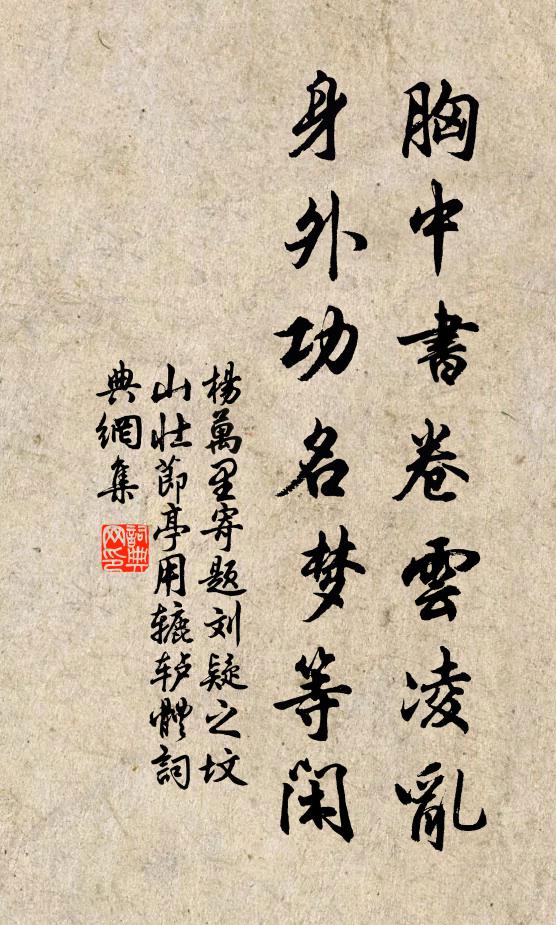 胸中書卷雲凌亂
身外功名梦等闲
楊萬里寄题刘疑之坟
山壮節亭用辘轳體詞
典網集
詞典
网印